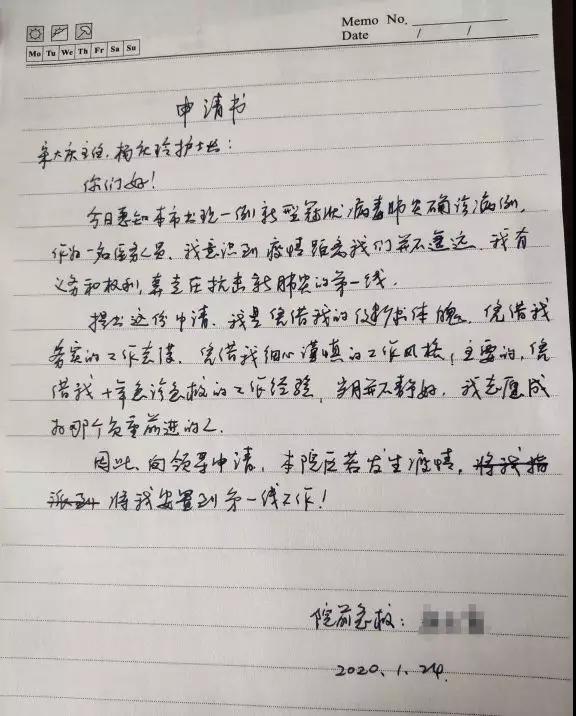 Memo No.
Date / /
Mo Tu We Th Fr Sa Su
申请书
主任、杨庆玲护士长：
你们好！
今日惠知本市出现一例新型冠状病毒肺炎确诊病例，
作为一名医务人员、我意识到疫情距离我们并不遥远、我有
义务和权利，奔走在抗击新肺炎的第一线。
提出这份申请、我是凭借我的健体魄、凭借我
务实的工作态度、凭借我细心谨慎的工作风格，主要的，凭
借我十年急诊急救的工作经验，岁月并不静好，我志愿成
为那个负重前进的人
因此、向领导申请，本院区若发生疫情，将我指
派到 将我安置到第一线工作！
院前急救：
2020.1.24.